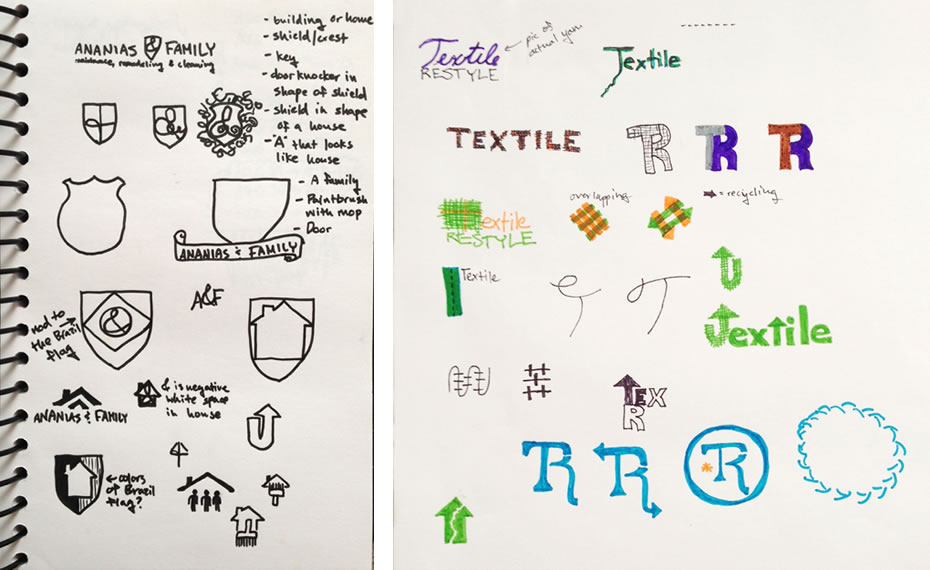 ANANIAS & FAMILY
maintenance, remodeling & cleaning
- building or home
- shield/crest
- key
- doorknocker in
shape of shield
- shield in shape
of a house
- "A" that looks
like house
- A family
- Paintbrush
with mop
- Door
&
&
ANANIAS & FAMILY
nod to
the Brazil
flag
&
A&F
ANANIAS & FAMILY
&
& is negative
white space
in house
← colors
of Brazil
flag?
Textile
RESTYLE
← pic of
actual yarn
Textile
TEXTILE
TR
TR
TR
Textile
RESTYLE
overlapping
= recycling
Textile
Textile
TEX
R
TR
TR
*TR